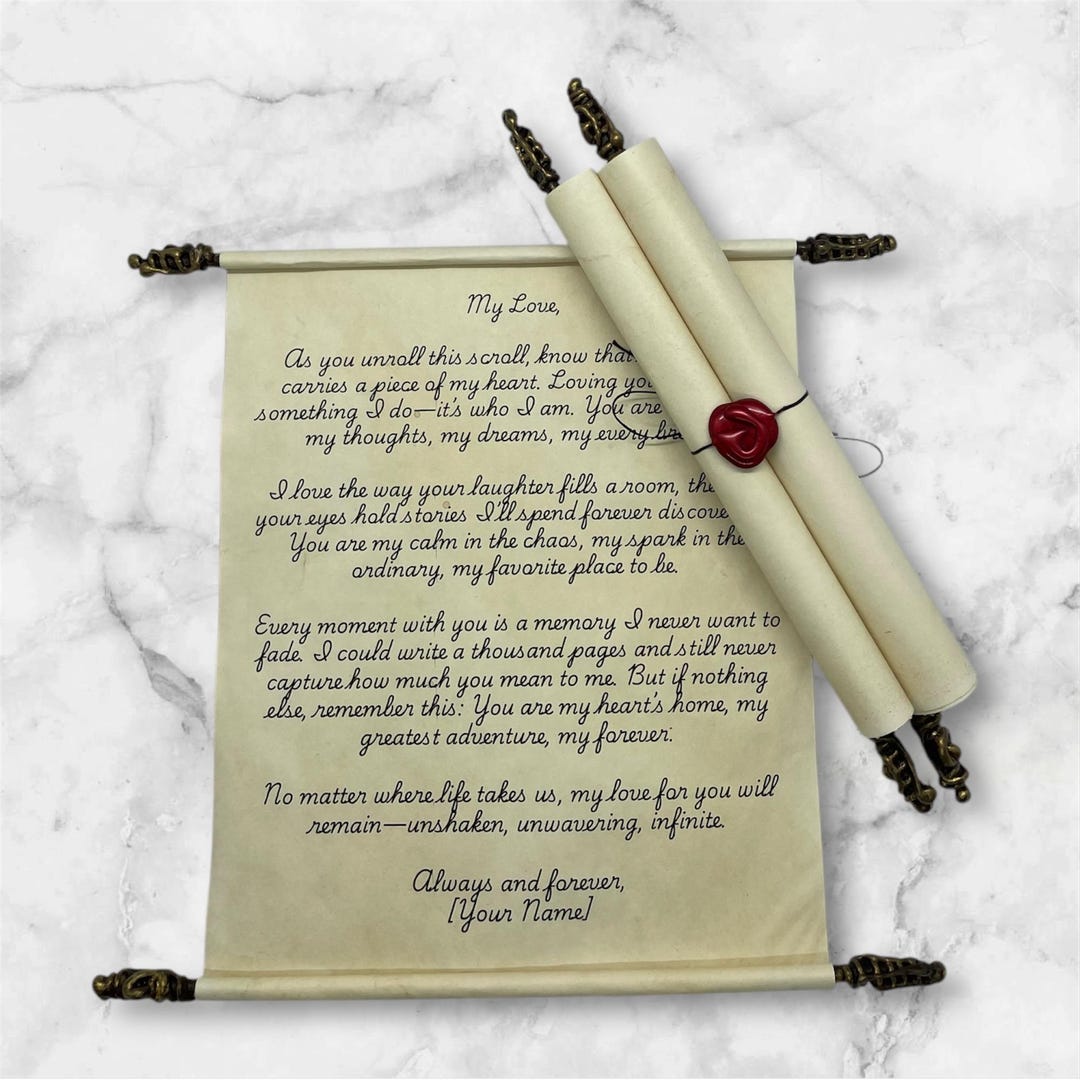 My Love,
As you unroll this scroll, know that
carries a piece of my heart. Loving you
something I do—it's who I am. You are
my thoughts, my dreams, my every
I love the way your laughter fills a room, the
your eyes hold stories I'll spend forever
You are my calm in the chaos, my spark in the
ordinary, my favorite place to be.
Every moment with you is a memory I never want to
fade. I could write a thousand pages and still never
capture how much you mean to me. But if nothing
else, remember this: You are my heart's home, my
greatest adventure, my forever.
No matter where life takes us, my love for you will
remain—unshaken, unwavering, infinite.
Always and forever,
[Your Name]